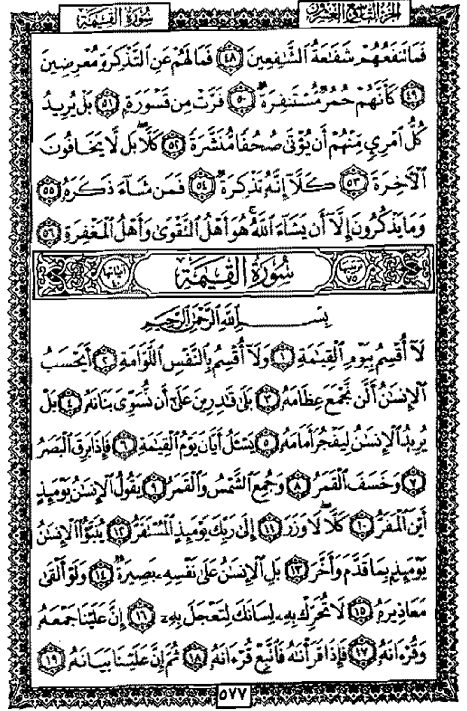 الجزء التاسع والعشرون سورة القيمة
فَمَا تَنفَعُهُمْ شَفَٰعَةُ ٱلشَّٰفِعِينَ ٤٨ فَمَا لَهُمْ عَنِ ٱلتَّذْكِرَةِ مُعْرِضِينَ
٤٩ كَأَنَّهُمْ حُمُرٌ مُّسْتَنفِرَةٌ ٥٠ فَرَّتْ مِن قَسْوَرَةٍ ٥١ بَلْ يُرِيدُ
كُلُّ ٱمْرِئٍ مِّنْهُمْ أَن يُؤْتَىٰ صُحُفًا مُّنَشَّرَةً ٥٢ كَلَّا بَل لَّا يَخَافُونَ
ٱلْأَخِرَةَ ٥٣ كَلَّا إِنَّهُ تَذْكِرَةٌ ٥٤ فَمَن شَاءَ ذَكَرَهُ ٥٥
وَمَا يَذْكُرُونَ إِلَّا أَن يَشَاءَ ٱللَّهُ هُوَ أَهْلُ ٱلتَّقْوَىٰ وَأَهْلُ ٱلْمَغْفِرَةِ ٥٦
ترتيبها ٧٥ سُورَةُ القِيَٰمَةِ آياتها ٤٠
بِسْمِ ٱللَّهِ ٱلرَّحْمَٰنِ ٱلرَّحِيمِ
لَا أُقْسِمُ بِيَوْمِ ٱلْقِيَٰمَةِ ١ وَلَا أُقْسِمُ بِٱلنَّفْسِ ٱللَّوَّامَةِ ٢ أَيَحْسَبُ
ٱلْإِنسَٰنُ أَلَّن نَّجْمَعَ عِظَامَهُ ٣ بَلَىٰ قَٰدِرِينَ عَلَىٰ أَن نُّسَوِّيَ بَنَانَهُ ٤ بَلْ
يُرِيدُ ٱلْإِنسَٰنُ لِيَفْجُرَ أَمَامَهُ ٥ يَسْـَٔلُ أَيَّانَ يَوْمُ ٱلْقِيَٰمَةِ ٦ فَإِذَا بَرِقَ ٱلْبَصَرُ
٧ وَخَسَفَ ٱلْقَمَرُ ٨ وَجُمِعَ ٱلشَّمْسُ وَٱلْقَمَرُ ٩ يَقُولُ ٱلْإِنسَٰنُ يَوْمَئِذٍ
أَيْنَ ٱلْمَفَرُّ ١٠ كَلَّا لَا وَزَرَ ١١ إِلَىٰ رَبِّكَ يَوْمَئِذٍ ٱلْمُسْتَقَرُّ ١٢ يُنَبَّؤُا ٱلْإِنسَٰنُ
يَوْمَئِذٍ بِمَا قَدَّمَ وَأَخَّرَ ١٣ بَلِ ٱلْإِنسَٰنُ عَلَىٰ نَفْسِهِ بَصِيرَةٌ ١٤ وَلَوْ أَلْقَىٰ
مَعَاذِيرَهُ ١٥ لَا تُحَرِّكْ بِهِ لِسَانَكَ لِتَعْجَلَ بِهِ ١٦ إِنَّ عَلَيْنَا جَمْعَهُ
وَقُرْءَانَهُ ١٧ فَإِذَا قَرَأْنَٰهُ فَٱتَّبِعْ قُرْءَانَهُ ١٨ ثُمَّ إِنَّ عَلَيْنَا بَيَانَهُ ١٩
٥٧٧